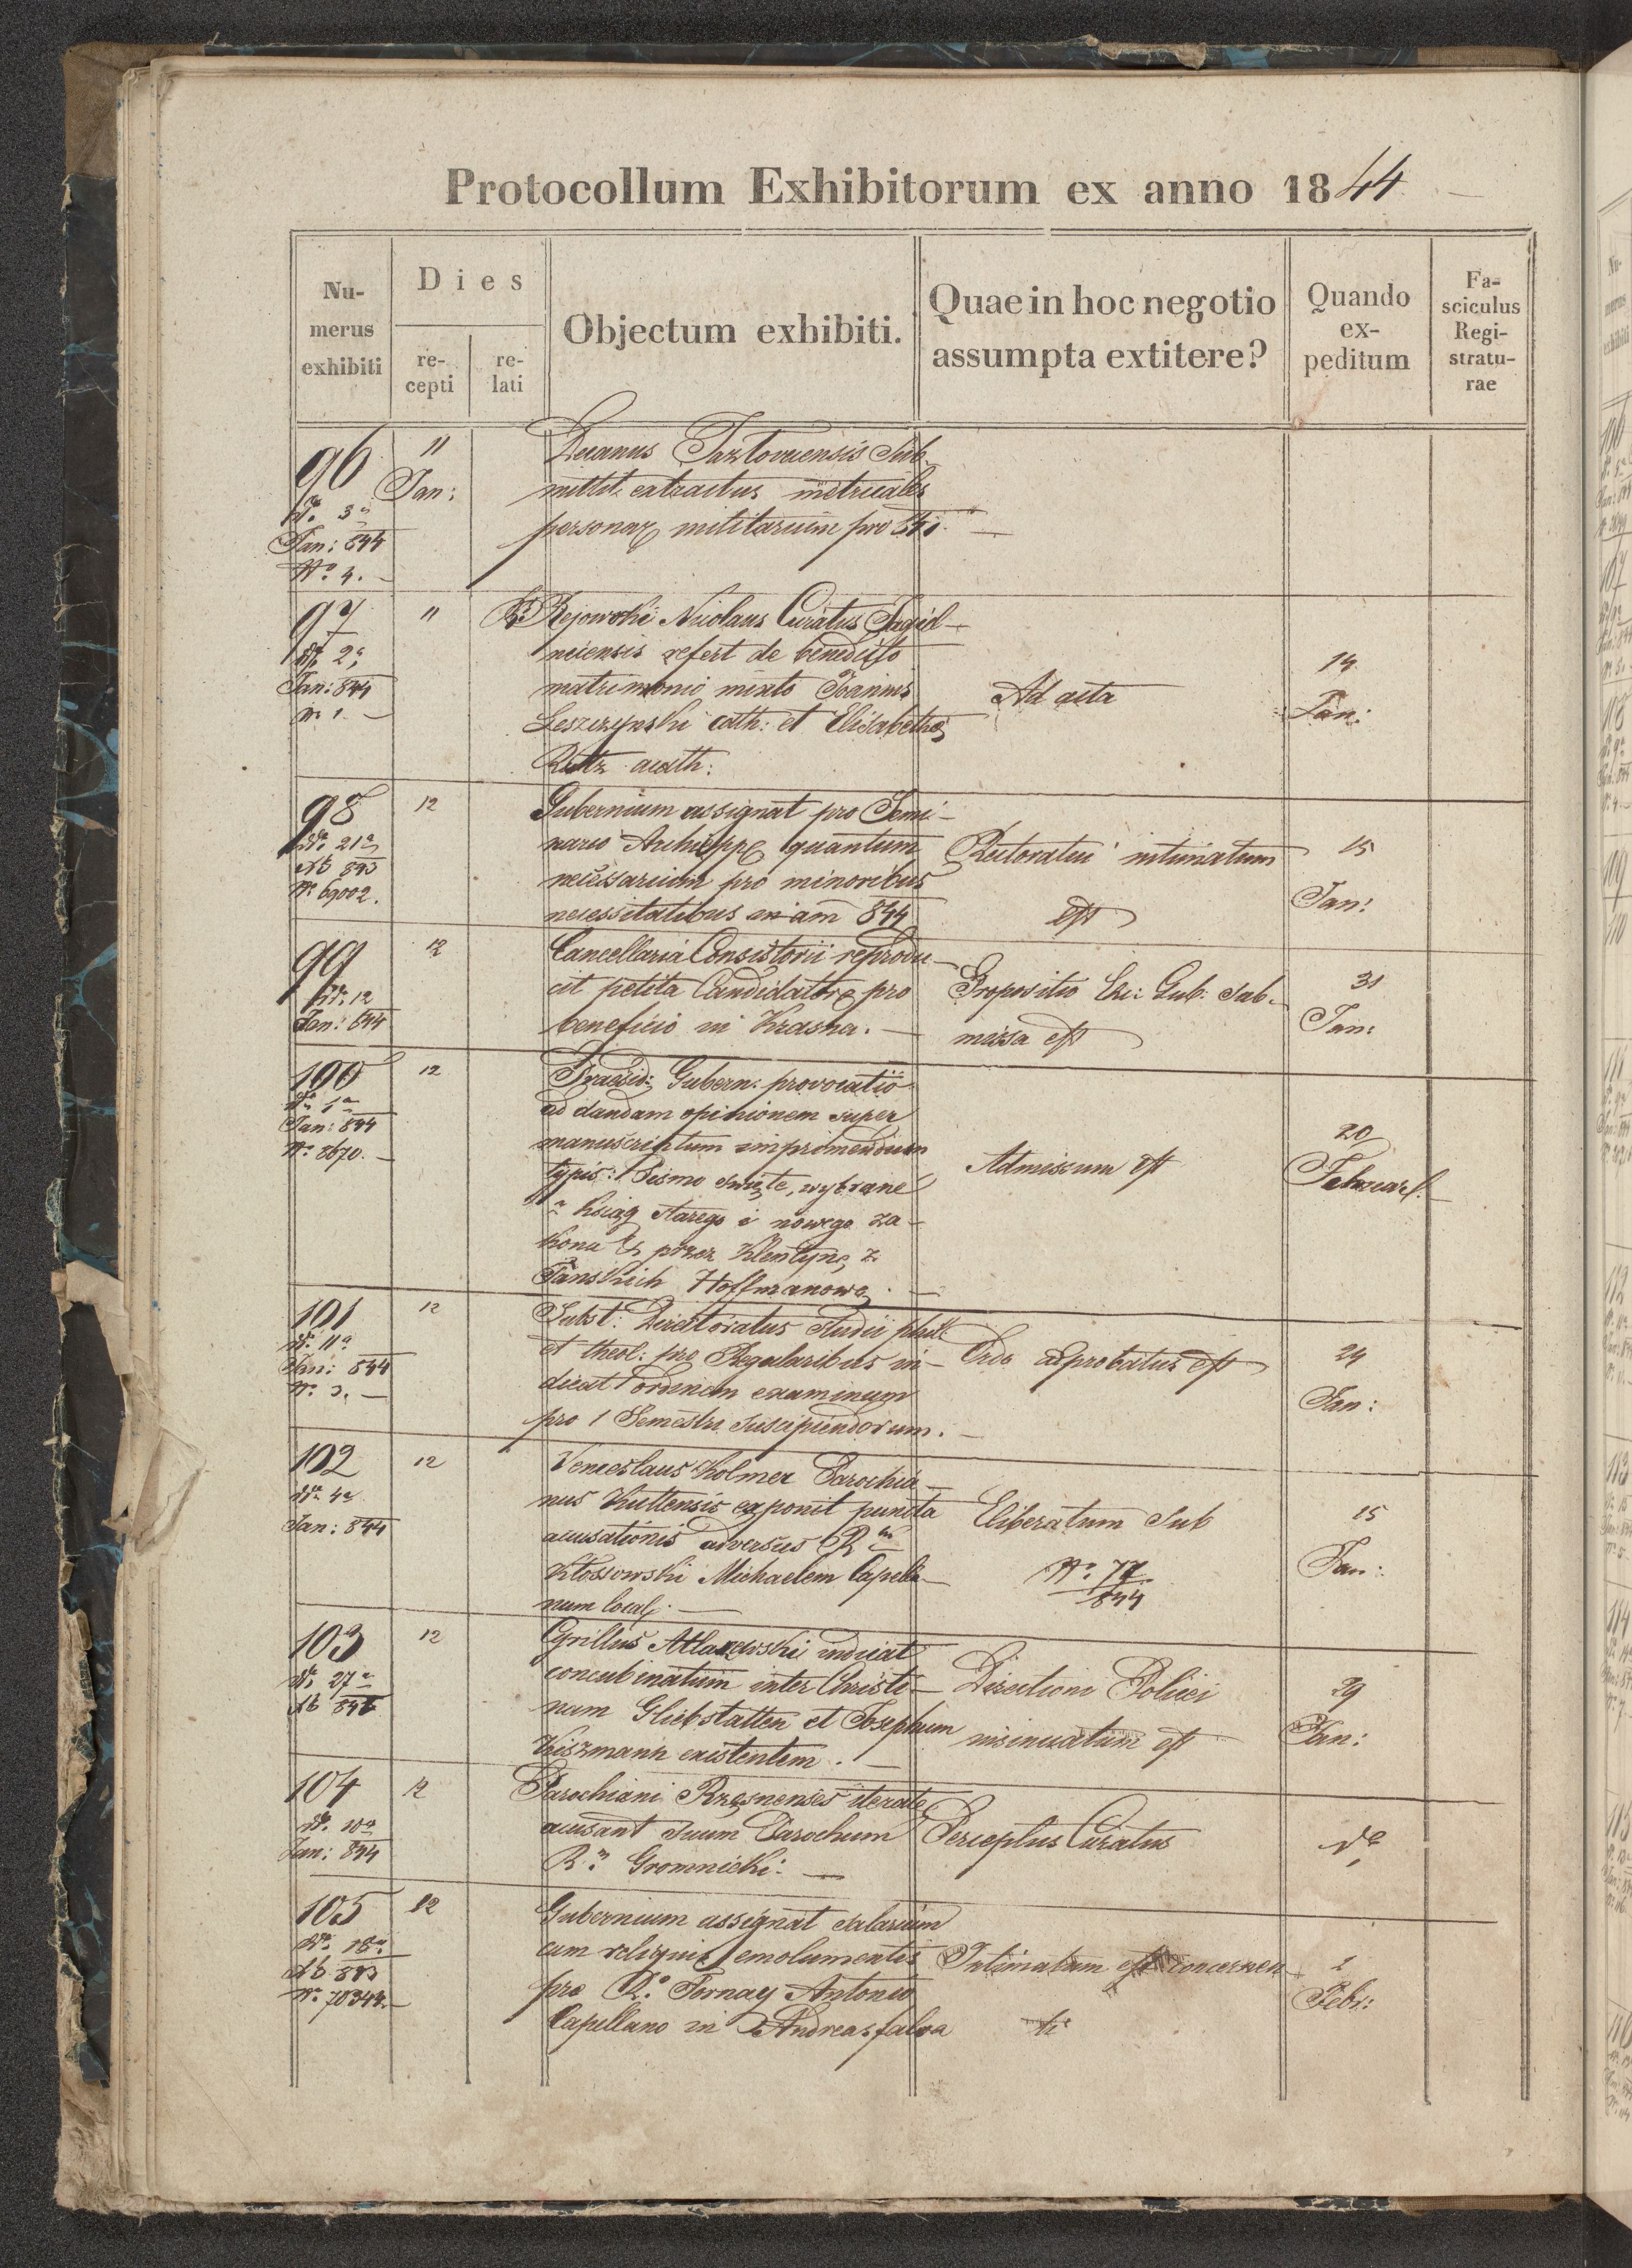 Protocollum Exhibitorum ex anno 1844
Nu-
merus
exhibiti
Dies
re-
cepti
re-
lati
Objectum exhibiti.
Quae in hoc negotio
assumpta extitere?
Quando
ex-
peditum
Fa-
sciculus
Regi-
stratu-
rae
96
dto 3a
Jan: 844
No 4.
11
Jan:
Decanus Jazlovecensis sub-
mittit extractus metricales
personar militarium pro
97
dto 2a
Jan: 844
No 1.
11
Rejowski Nicolaus Curatus Jagiel-
neiensis refert de benedicto
matrimonio mixto Joannis
Leszczynski cath: et Elisabethae
Rutz acath:
Ad acta
14
Jan:
98
dto 21a
Xb 843
No 69002.
12
Gubernium assignat pro Semi-
nario Archiepp quantum
necessarium pro minoribus
necessitatibus in am 844
Rectoratui intimatum
est
15
Jan:
99
dto 12
Jan: 844
12
Cancellaria Consistorii reprodu-
cit petita Candidator pro
beneficio in Krasna.
Propositio Exc: Gub: sub-
missa est
31
Jan:
100
dto 1a
Jan: 844
No 8670.
12
Praesid: Gubern: provocatio
ad dandam opinionem super
manuscriptum imprimendum
typis: Pismo swięte, wybrane
z ksiąg starego i nowego za-
konu & przez Klentynę z
Tanskich Hoffmanowę.
Admissum est
20
Februar.
101
dto 11a
Jan: 844
No 3.
12
Subst: Directoratus studii phil:
et theol: pro Regularibus in-
dicat ordinem examinum
pro 1 Semestri suscipiendorum.
Ordo approbatus est
24
Jan:
102
dto 4a
Jan: 844
12
Venceslaus Holmer Parochia-
nus Kuttensis exponit puncta
acusationis adversus Rm
Klossowski Michaelem Capella-
num local.
Eliberatum sub
No 77
844
15
Jan:
103
dto 27a
Xb 843
12
Cyrillus Atlazewski indicat
concubinatum inter Christi-
nam Gliebstatten et Josephum
Kiszmann existentem.
Directioni Policei
insinuatum est
29
Jan:
104
dto 10a
Jan: 844
12
Parochiani Rzesnenses iterate
acusant suum Parochum
Rm Gromnicki:
Perceptus Curatus
dto
105
dto 18a
Xb 843
No 70344.
12
Gubernium assignat salarium
cum reliquis emolumentis
pro Ro Fornay Antonio
Capellano in Andreasfalva
Intimatum est concernen-
ti
1
Febr: